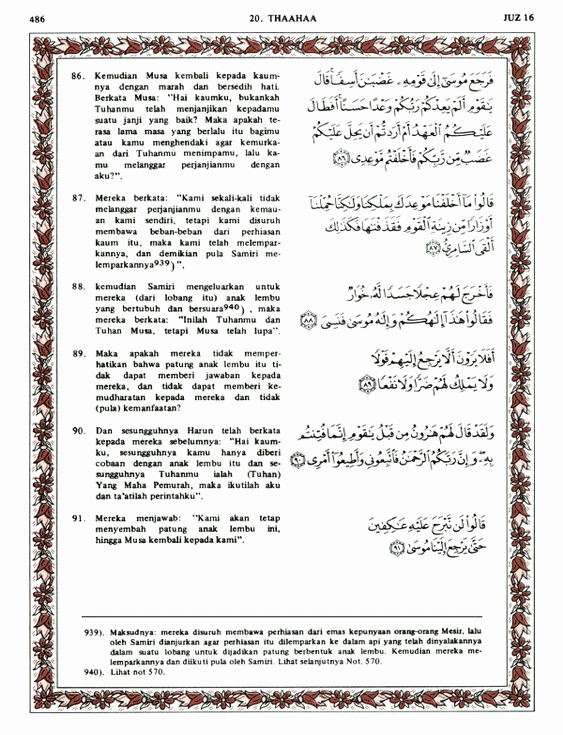 486
20. THAAHAA
JUZ 16
86. Kemudian Musa kembali kepada kaum-
nya dengan marah dan bersedih hati.
Berkata Musa: "Hai kaumku, bukankah
Tuhanmu telah menjanjikan kepadamu
suatu janji yang baik? Maka apakah te-
rasa lama masa yang berlalu itu bagimu
atau kamu menghendaki agar kemurka-
an dari Tuhanmu menimpamu, lalu ka-
mu melanggar perjanjianmu dengan
aku?".
فَرَجَعَ مُوسَىٰٓ إِلَىٰ قَوْمِهِۦ غَضْبَٰنَ أَسِفًا ۚ قَالَ
يَٰقَوْمِ أَلَمْ يَعِدْكُمْ رَبُّكُمْ وَعْدًا حَسَنًا ۚ أَفَطَالَ
عَلَيْكُمُ ٱلْعَهْدُ أَمْ أَرَدتُّمْ أَن يَحِلَّ عَلَيْكُمْ
غَضَبٌ مِّن رَّبِّكُمْ فَأَخْلَفْتُم مَّوْعِدِى ٨٦
87. Mereka berkata: "Kami sekali-kali tidak
melanggar perjanjianmu dengan kemau-
an kami sendiri, tetapi kami disuruh
membawa beban-beban dari perhiasan
kaum itu, maka kami telah melempar-
kannya, dan demikian pula Samiri me-
lemparkannya939)",
قَالُوا۟ مَآ أَخْلَفْنَا مَوْعِدَكَ بِمَلْكِنَا وَلَٰكِنَّا حُمِّلْنَآ
أَوْزَارًا مِّن زِينَةِ ٱلْقَوْمِ فَقَذَفْنَٰهَا فَكَذَٰلِكَ
أَلْقَى ٱلسَّامِرِىُّ ٨٧
88. kemudian Samiri mengeluarkan untuk
mereka (dari lobang itu) anak lembu
yang bertubuh dan bersuara940) , maka
mereka berkata: "Inilah Tuhanmu dan
Tuhan Musa, tetapi Musa telah lupa".
فَأَخْرَجَ لَهُمْ عِجْلًا جَسَدًا لَّهُۥ خُوَارٌ
فَقَالُوا۟ هَٰذَآ إِلَٰهُكُمْ وَإِلَٰهُ مُوسَىٰ فَنَسِىَ ٨٨
89. Maka apakah mereka tidak memper-
hatikan bahwa patung anak lembu itu ti-
dak dapat memberi jawaban kepada
mereka, dan tidak dapat memberi ke-
mudharatan kepada mereka dan tidak
(pula) kemanfaatan?
أَفَلَا يَرَوْنَ أَلَّا يَرْجِعُ إِلَيْهِمْ قَوْلًا
وَلَا يَمْلِكُ لَهُمْ ضَرًّا وَلَا نَفْعًا ٨٩
90. Dan sesungguhnya Harun telah berkata
kepada mereka sebelumnya: "Hai kaum-
ku, sesungguhnya kamu hanya diberi
cobaan dengan anak lembu itu dan se-
sungguhnya Tuhanmu ialah (Tuhan)
Yang Maha Pemurah, maka ikutilah aku
dan ta'atilah perintahku".
وَلَقَدْ قَالَ لَهُمْ هَٰرُونُ مِن قَبْلُ يَٰقَوْمِ إِنَّمَا فُتِنتُم
بِهِۦ ۖ وَإِنَّ رَبَّكُمُ ٱلرَّحْمَٰنُ فَٱتَّبِعُونِى وَأَطِيعُوٓا۟ أَمْرِى ٩٠
91. Mereka menjawab: "Kami akan tetap
menyembah patung anak lembu ini,
hingga Musa kembali kepada kami".
قَالُوا۟ لَن نَّبْرَحَ عَلَيْهِ عَٰكِفِينَ
حَتَّىٰ يَرْجِعَ إِلَيْنَا مُوسَىٰ ٩١
939). Maksudnya: mereka disuruh membawa perhiasan dari emas kepunyaan orang-orang Mesir, lalu
oleh Samiri dianjurkan agar perhiasan itu dilemparkan ke dalam api yang telah dinyalakannya
dalam suatu lobang untuk dijadikan patung berbentuk anak lembu. Kemudian mereka me-
lemparkannya dan diikuti pula oleh Samiri. Lihat selanjutnya Not. 570.
940). Lihat not 570.